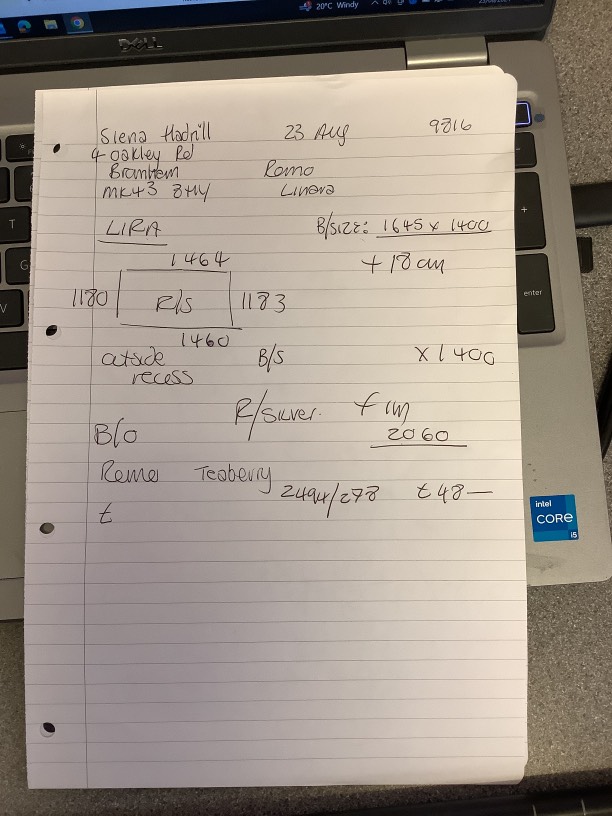 20°C Windy
DELL
Siena Hadrill 23 Aug 9816
4 Oakley Rd
Bromham Remo
MK43 8HY Linara
LIRA B/SIZE: 1645 x 1400
1464 + 18cm
1180 R/S 1183
1460
outside B/S x 1400
recess
R/Silver. + cm
B/O 2060
Remo Teaberry
2494/278 £48—
t
enter
intel
CORE
i5